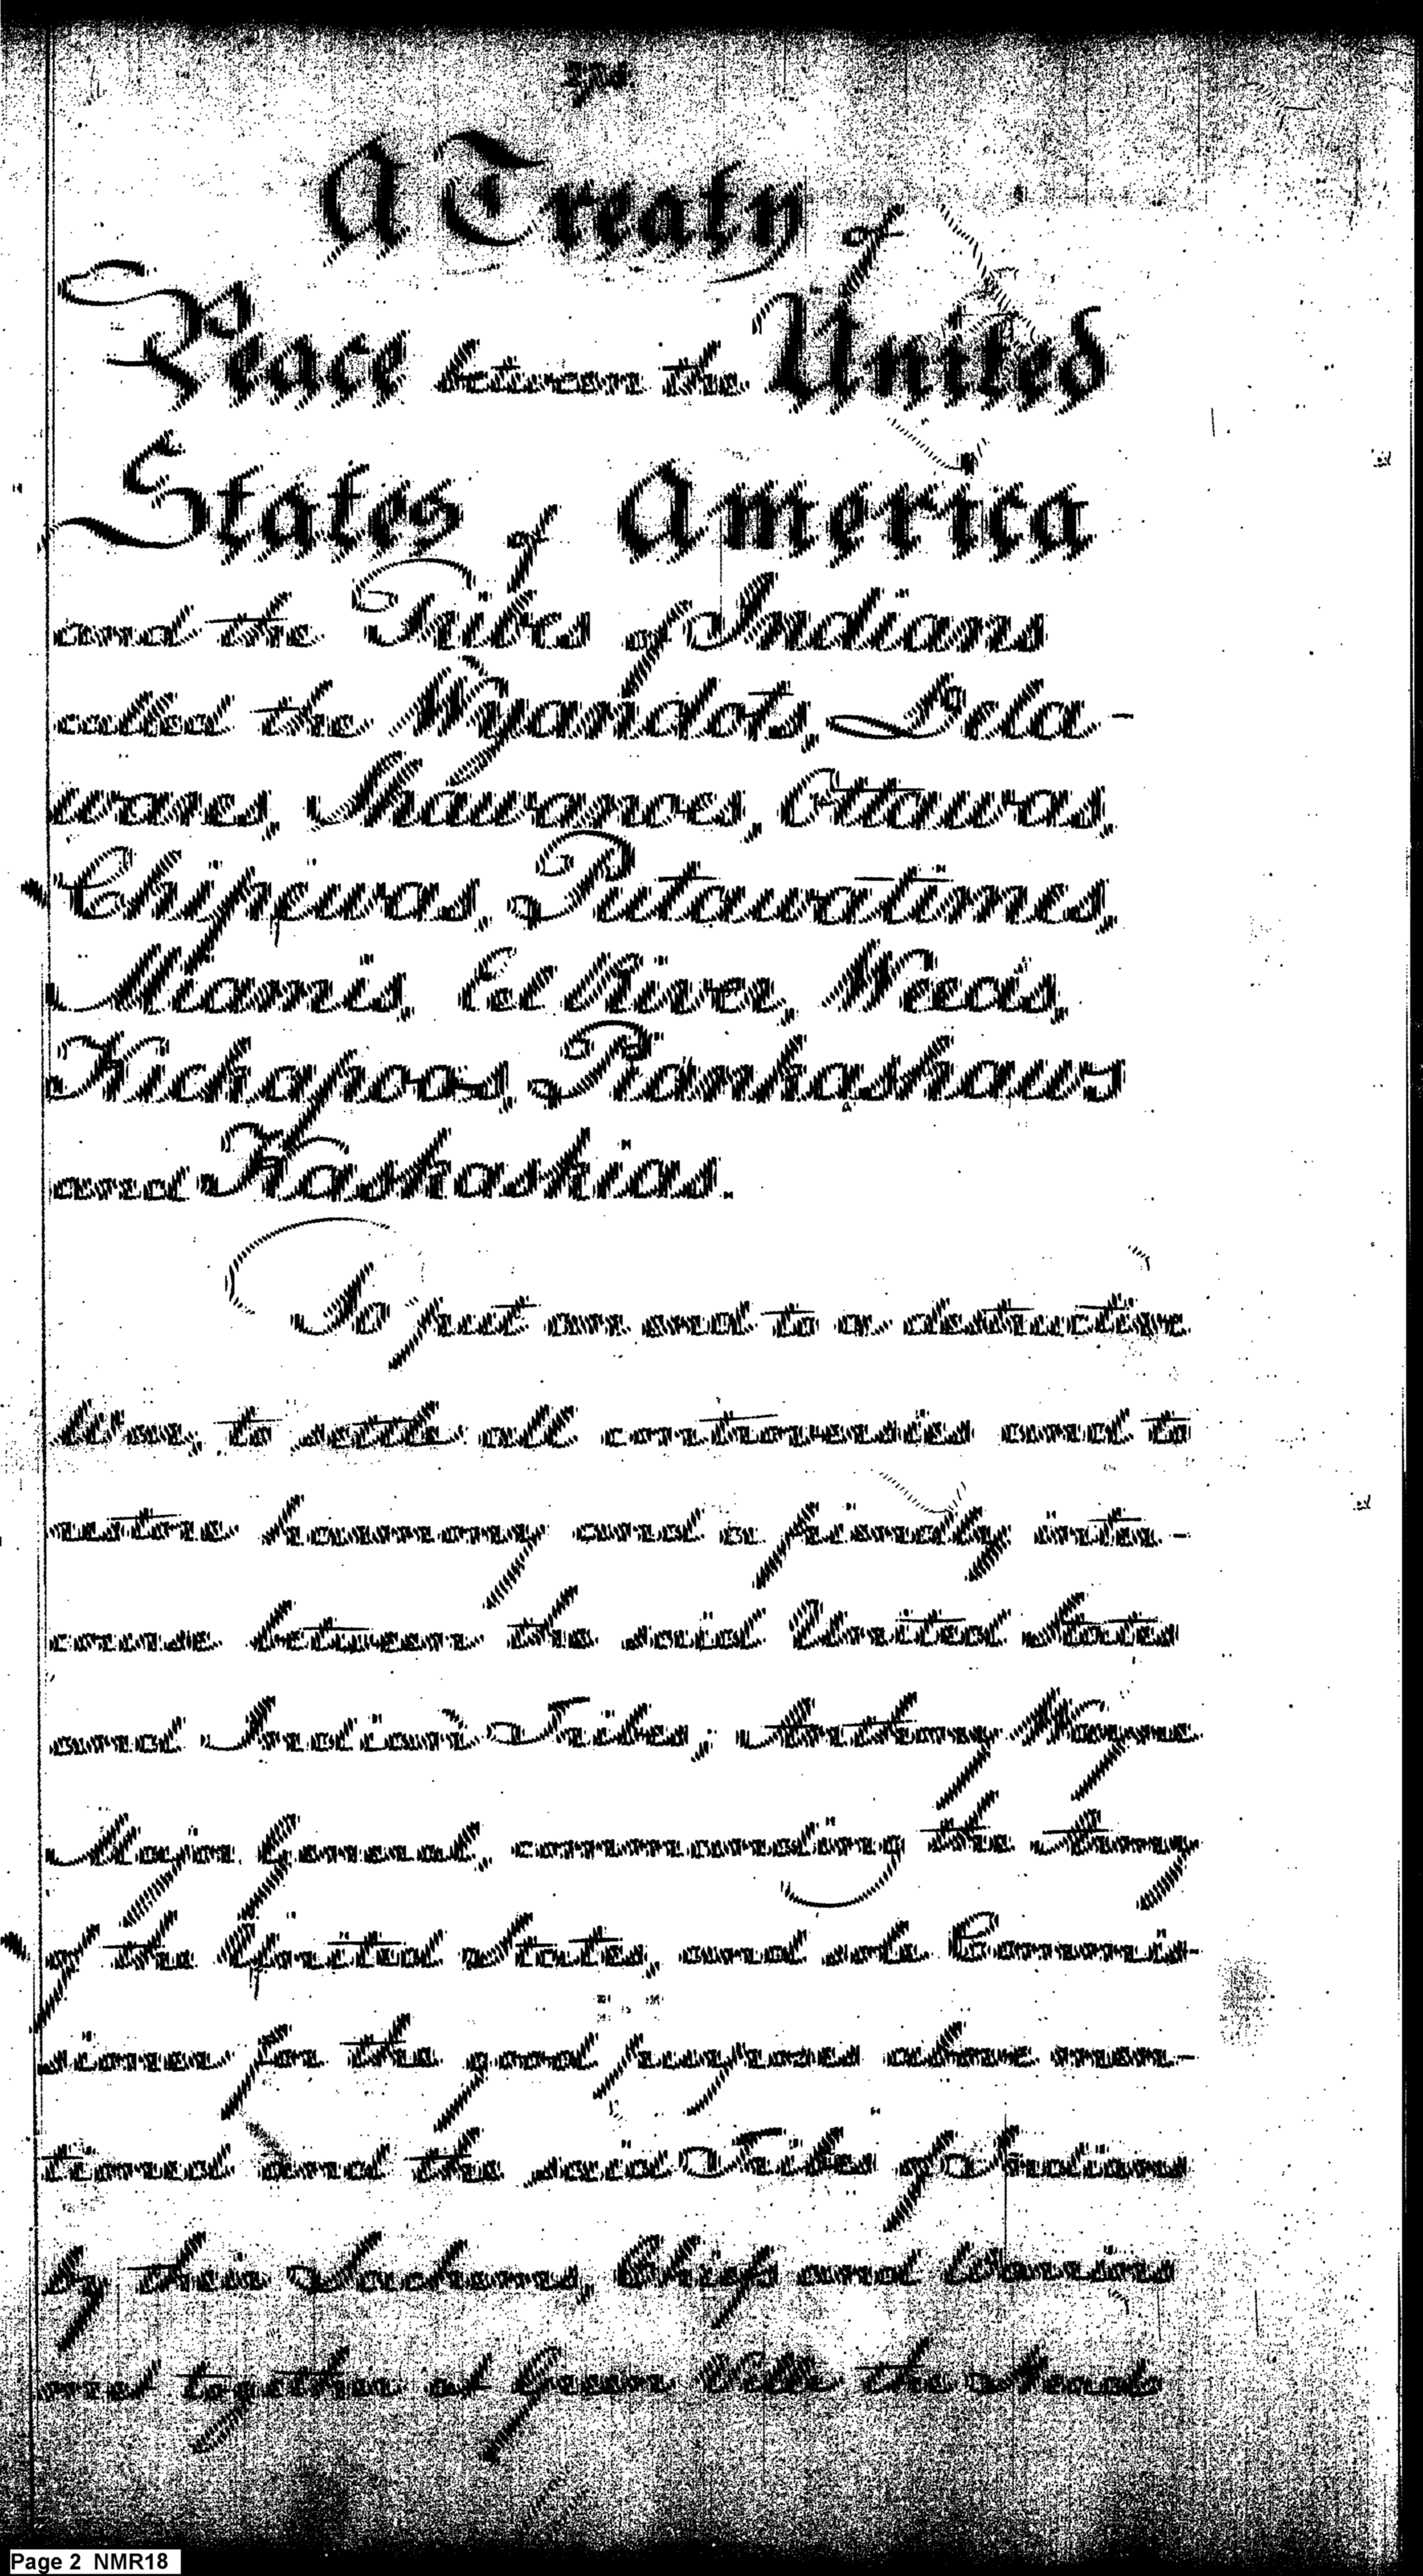 A Treaty of
Peace between the United
States of America
and the Tribes of Indians
called the Wyandots, Dela-
wares, Shawanoes, Ottawas,
Chipewas, Putawatimes,
Miamis, Eel River, Weea's,
Kickapoos, Piankashaws
and Kaskaskias.
To put an end to a destructive
War, to settle all controversies and to
restore harmony and a friendly inter-
course between the said United States
and Indian Tribes; Anthony Wayne
Major General, commanding the Army
of the United States, and sole Commis-
sioner for the good purposes above men-
tioned and the said Tribes of Indians
by their Sachems, Chiefs and Warriors
met together at Greene Ville the Head
Page 2 NMR18